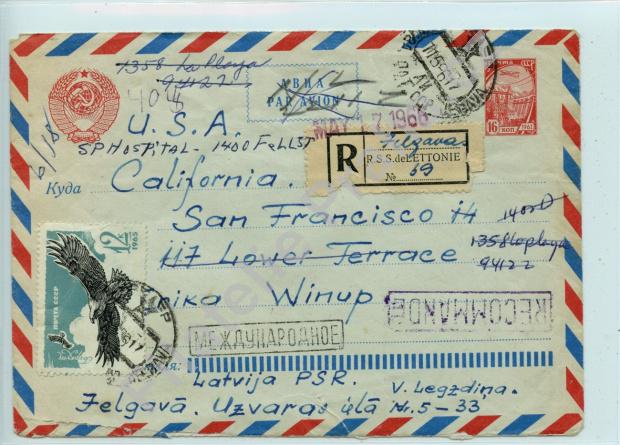 1358 La Playa
94122
АВИА
PAR AVION
404
ПОЧТА СССР
16 КОП
1961
U.S.A.
MAY 17 1966
SP HOSPITAL - 1400 FELL ST
R
Jelgava
R.S.S. de LETTONIE
№ 69
Куда
California.
San Francisco 14
1400
117 Lower Terrace
1358 La playa
94122
12
1965
ПОЧТА СССР
Winup
RECOMMANDÉ
МЕЖДУНАРОДНОЕ
Latvija PSR.
V. Legzdiņa.
Jelgavā. Uzvaras ielā № 5-33